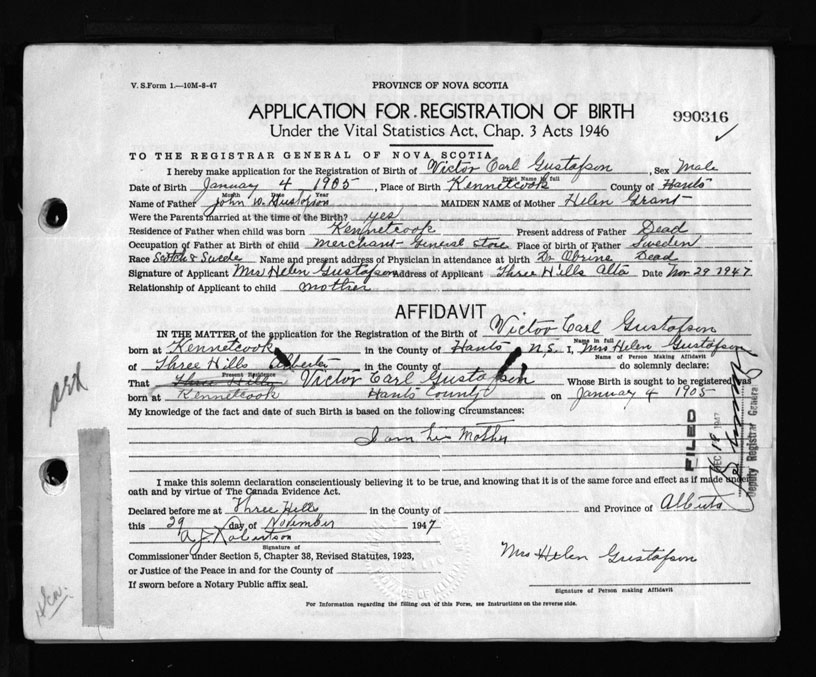 V. S. Form 1.—10M-8-47 PROVINCE OF NOVA SCOTIA
APPLICATION FOR REGISTRATION OF BIRTH 990316
Under the Vital Statistics Act, Chap. 3 Acts 1946
TO THE REGISTRAR GENERAL OF NOVA SCOTIA
I hereby make application for the Registration of Birth of Victor Carl Gustafson, Sex Male
Print Name in full
Date of Birth January 4 1905, Place of Birth Kennetcook County of Hants
Month Date Year
Name of Father John W. Gustafson MAIDEN NAME of Mother Helen Grant
Were the Parents married at the time of the Birth? yes
Residence of Father when child was born Kennetcook Present address of Father Dead
Occupation of Father at Birth of child Merchant General Store Place of birth of Father Sweden
Race Scotch & Swede Name and present address of Physician in attendance at birth Dr Obrine Dead
Signature of Applicant Mrs Helen Gustafson Address of Applicant Three Hills Alta Date Nov 29 1947
Relationship of Applicant to child mother
AFFIDAVIT
IN THE MATTER of the application for the Registration of the Birth of Victor Carl Gustafson
Name in full
born at Kennetcook in the County of Hants N.S. I, Mrs Helen Gustafson
Name of Person Making Affidavit
of Three Hills Alberta in the County of do solemnly declare:
Present Residence
That Three Hills Victor Carl Gustafson Whose Birth is sought to be registered was
born at Kennetcook Hants County on January 4 1905
My knowledge of the fact and date of such Birth is based on the following Circumstances:
I am his Mother
FILED
DEC 19 1947
Deputy Registrar General
I make this solemn declaration conscientiously believing it to be true, and knowing that it is of the same force and effect as if made under
oath and by virtue of The Canada Evidence Act.
Declared before me at Three Hills in the County of and Province of Alberta
this 29 day of November 1947
A. J. Robertson
Signature of
Commissioner under Section 5, Chapter 38, Revised Statutes, 1923,
or Justice of the Peace in and for the County of
If sworn before a Notary Public affix seal.
Mrs Helen Gustafson
Signature of Person making Affidavit
For Information regarding the filling out of this Form, see Instructions on the reverse side.